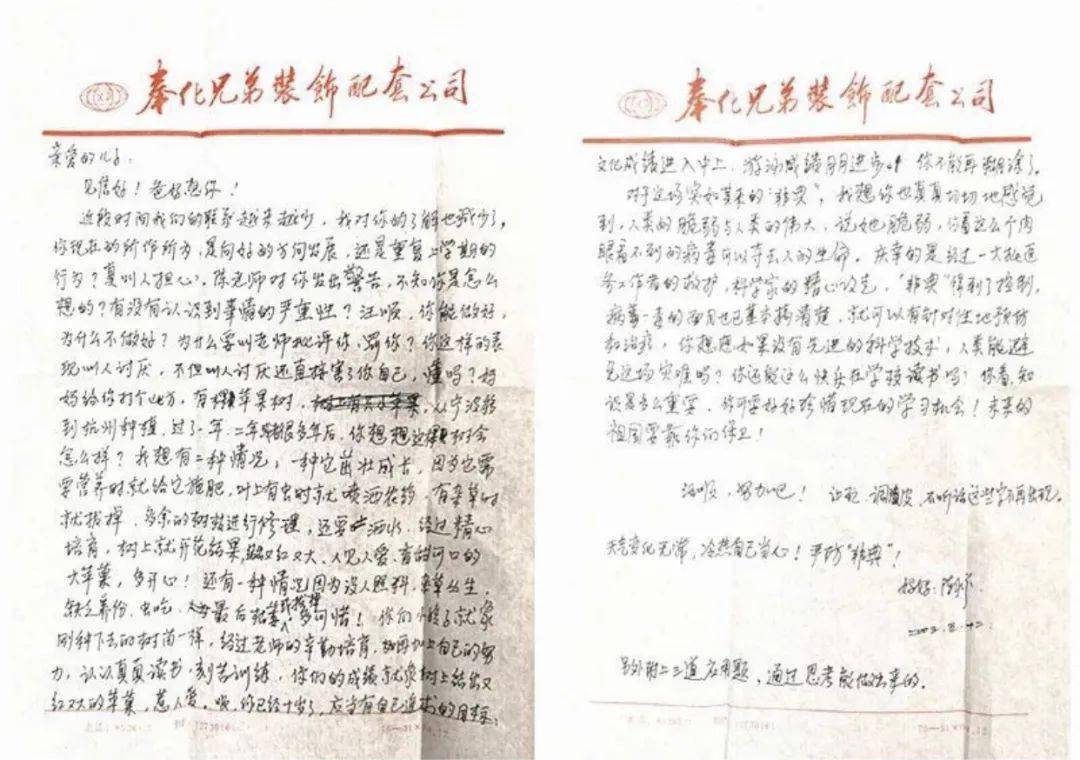 奉化兄弟裝飾配套公司
亲爱的儿子：
见信好！爸妈想你！
近段时间我们的联系越来越少，我对你的了解也减少了，
你现在的所作所为，是向好的方向发展，还是重复上学期的
行为？真叫人担心，陈老师对你发出警告，不知你是怎么
想的？有没有认识到事情的严重性？汪顺，你能做好，
为什么不做好？为什么要叫老师批评你、骂你？你这样的表
现叫人讨厌，不但叫人讨厌还直接害了你自己，懂吗？妈
妈给你打个比方，有棵苹果树，从宁波移
到杭州种植，过了一年、二年 很多年后，你想想这棵树会
怎么样？我想有二种情况，一种它茁壮成长，因为它需
要营养时就给它施肥，叶上有虫时就喷洒农药，有杂草时
就拔掉，多余的树枝进行修理，还要洒水，经过精心
培育，树上就开花结果，又红又大、人见人爱、香甜可口的
大苹果，多开心！还有一种情况因为没人照料，杂草丛生，
缺乏养份，虫吃，最后枯萎 多可惜！你们小孩子就象
刚种下去的树苗一样，经过老师的辛勤培育，再加上自己的努
力，认认真真读书，刻苦训练，你们的成绩就象树上结出又
红又大的苹果，惹人爱。顺，你已经十岁了，应该有自己追求的目标：
奉化兄弟裝飾配套公司
文化成绩进入中上，游泳成绩月月进步。你不能再糊涂了。
对于这场突如其来的“非典”，我想你也真真切切地感觉
到，人类的脆弱与人类的伟大，说她脆弱，你看这么个肉
眼看不到的病毒可以夺去人的生命。庆幸的是经过一大批医
务工作者的救护，科学家的精心攻克，“非典”得到了控制，
病毒 的面目也已基本搞清楚，就可以有针对性地预防
和治疗，你想想如果没有先进的科学技术，人类能避
免这场灾难吗？你还能这么快乐在学校读书吗？你看，知
识是多么重要，你可要好好珍惜现在的学习机会！未来的
祖国要靠你们保卫！
汪顺，努力吧！让玩、调皮、不听话这些字不再出现。
天气变化无常，冷热自己当心！严防“非典”！
妈妈：
另外附上三道应用题，通过思考能做出来的。